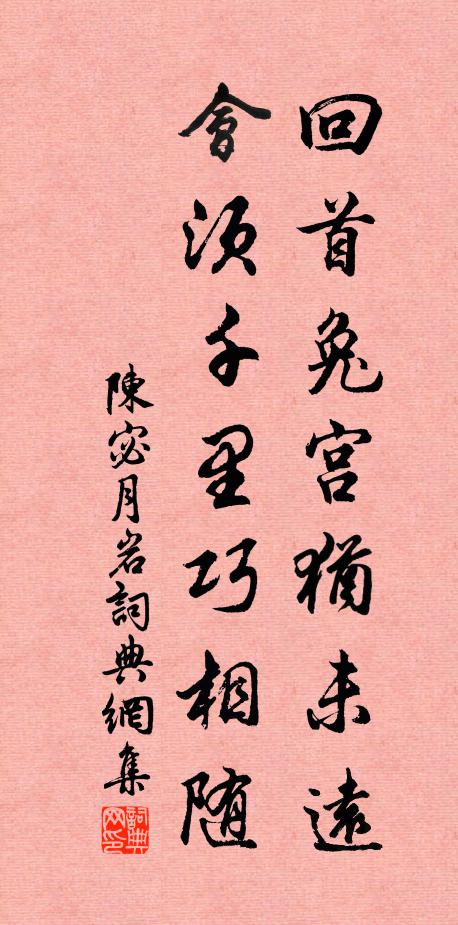 回首兔宫猶未遠
會須千里巧相随
陳宓月岩詞典網集
詞典网印